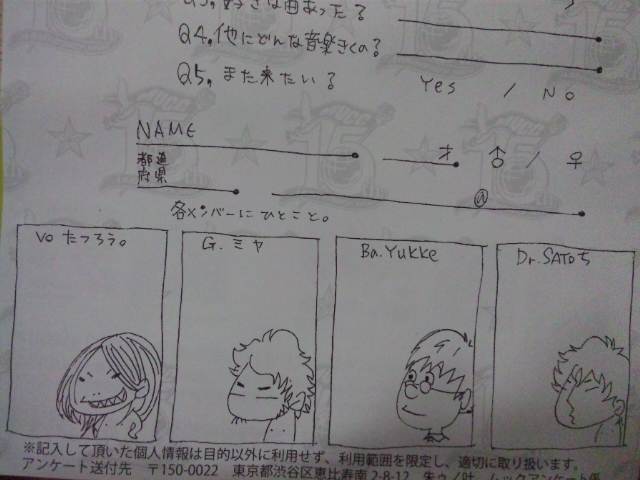 Q3.好きな曲あった?
Q4.他にどんな音楽きくの?
Q5.また来たい?
Yes / No
NAME
才 ♂ / ♀
都道
府県
@
各メンバーにひとこと。
Vo たつろう。
G. ミヤ
Ba.YUKKe
Dr.SATOち
※記入して頂いた個人情報は目的以外に利用せず、利用範囲を限定し、適切に取り扱います。
アンケート送付先 〒150-0022 東京都渋谷区恵比寿南2-8-12